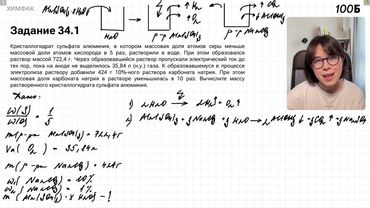 ХИМФАК
100Б
Задание 34.1
H₂O
Кристаллогидрат сульфата алюминия, в котором массовая доля атомов серы меньше
массовой доли атомов кислорода в 5 раз, растворили в воде. При этом образовался
раствор массой 722,4 г. Через образовавшийся раствор пропускали электрический ток до
тех пор, пока на аноде не выделилось 35,84 л (н.у.) газа. К образовавшемуся в процессе
электролиза раствору добавили 424 г 10%-ного раствора карбоната натрия. При этом
массовая доля карбоната натрия в растворе уменьшилась в 10 раз. Вычислите массу
растворенного кристаллогидрата сульфата алюминия.
Дано:
ω(S)/ω(O) = 1/5
1) 2H₂O → 2H₂↑ + O₂↑
V(O₂) = 35,84л
m(р-ра Na₂CO₃) = 424г
ω₁(Na₂CO₃) = 10%
ω₂(Na₂CO₃) = 1%